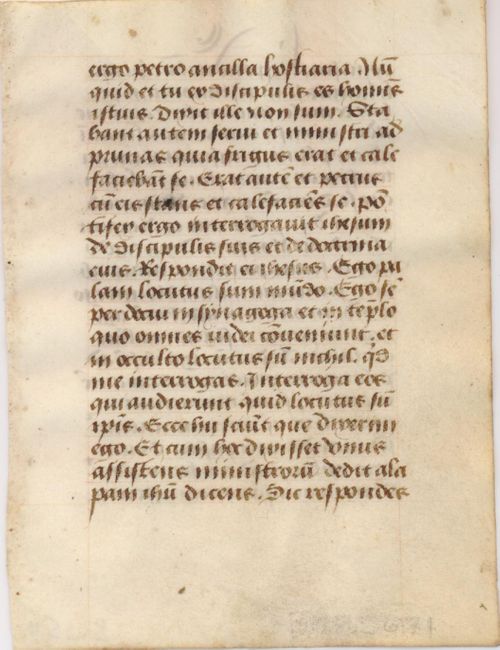 ergo petro ancilla hostiaria . Nū
quid et tu ex discipulis es hominis
istius . Dixit ille non sum . Sta
bant autem serui et ministri ad
prunas quia frigus erat et cale
faciebāt se . Erat autē et petrus
cū eis stans et calefaciēs se . pō
tifex ergo interrogauit ihesum
de discipulis suis et de doctrina
eius . Respondit ei ihesus . Ego pa
lam locutus sum mūdo . Ego sē
per docui in synagoga et in tēplo
quo omnes iudei cōueniunt . et
in occulto locutus sū nichil . qd
me interrogas . Interroga eos
qui audierunt quid locutus sū
ipīs . Ecce hii sciūt que dixerim
ego . Et cum hec dixisset vnus
assistens ministrorū dedit ala
pam ihū dicens . Sic respondes